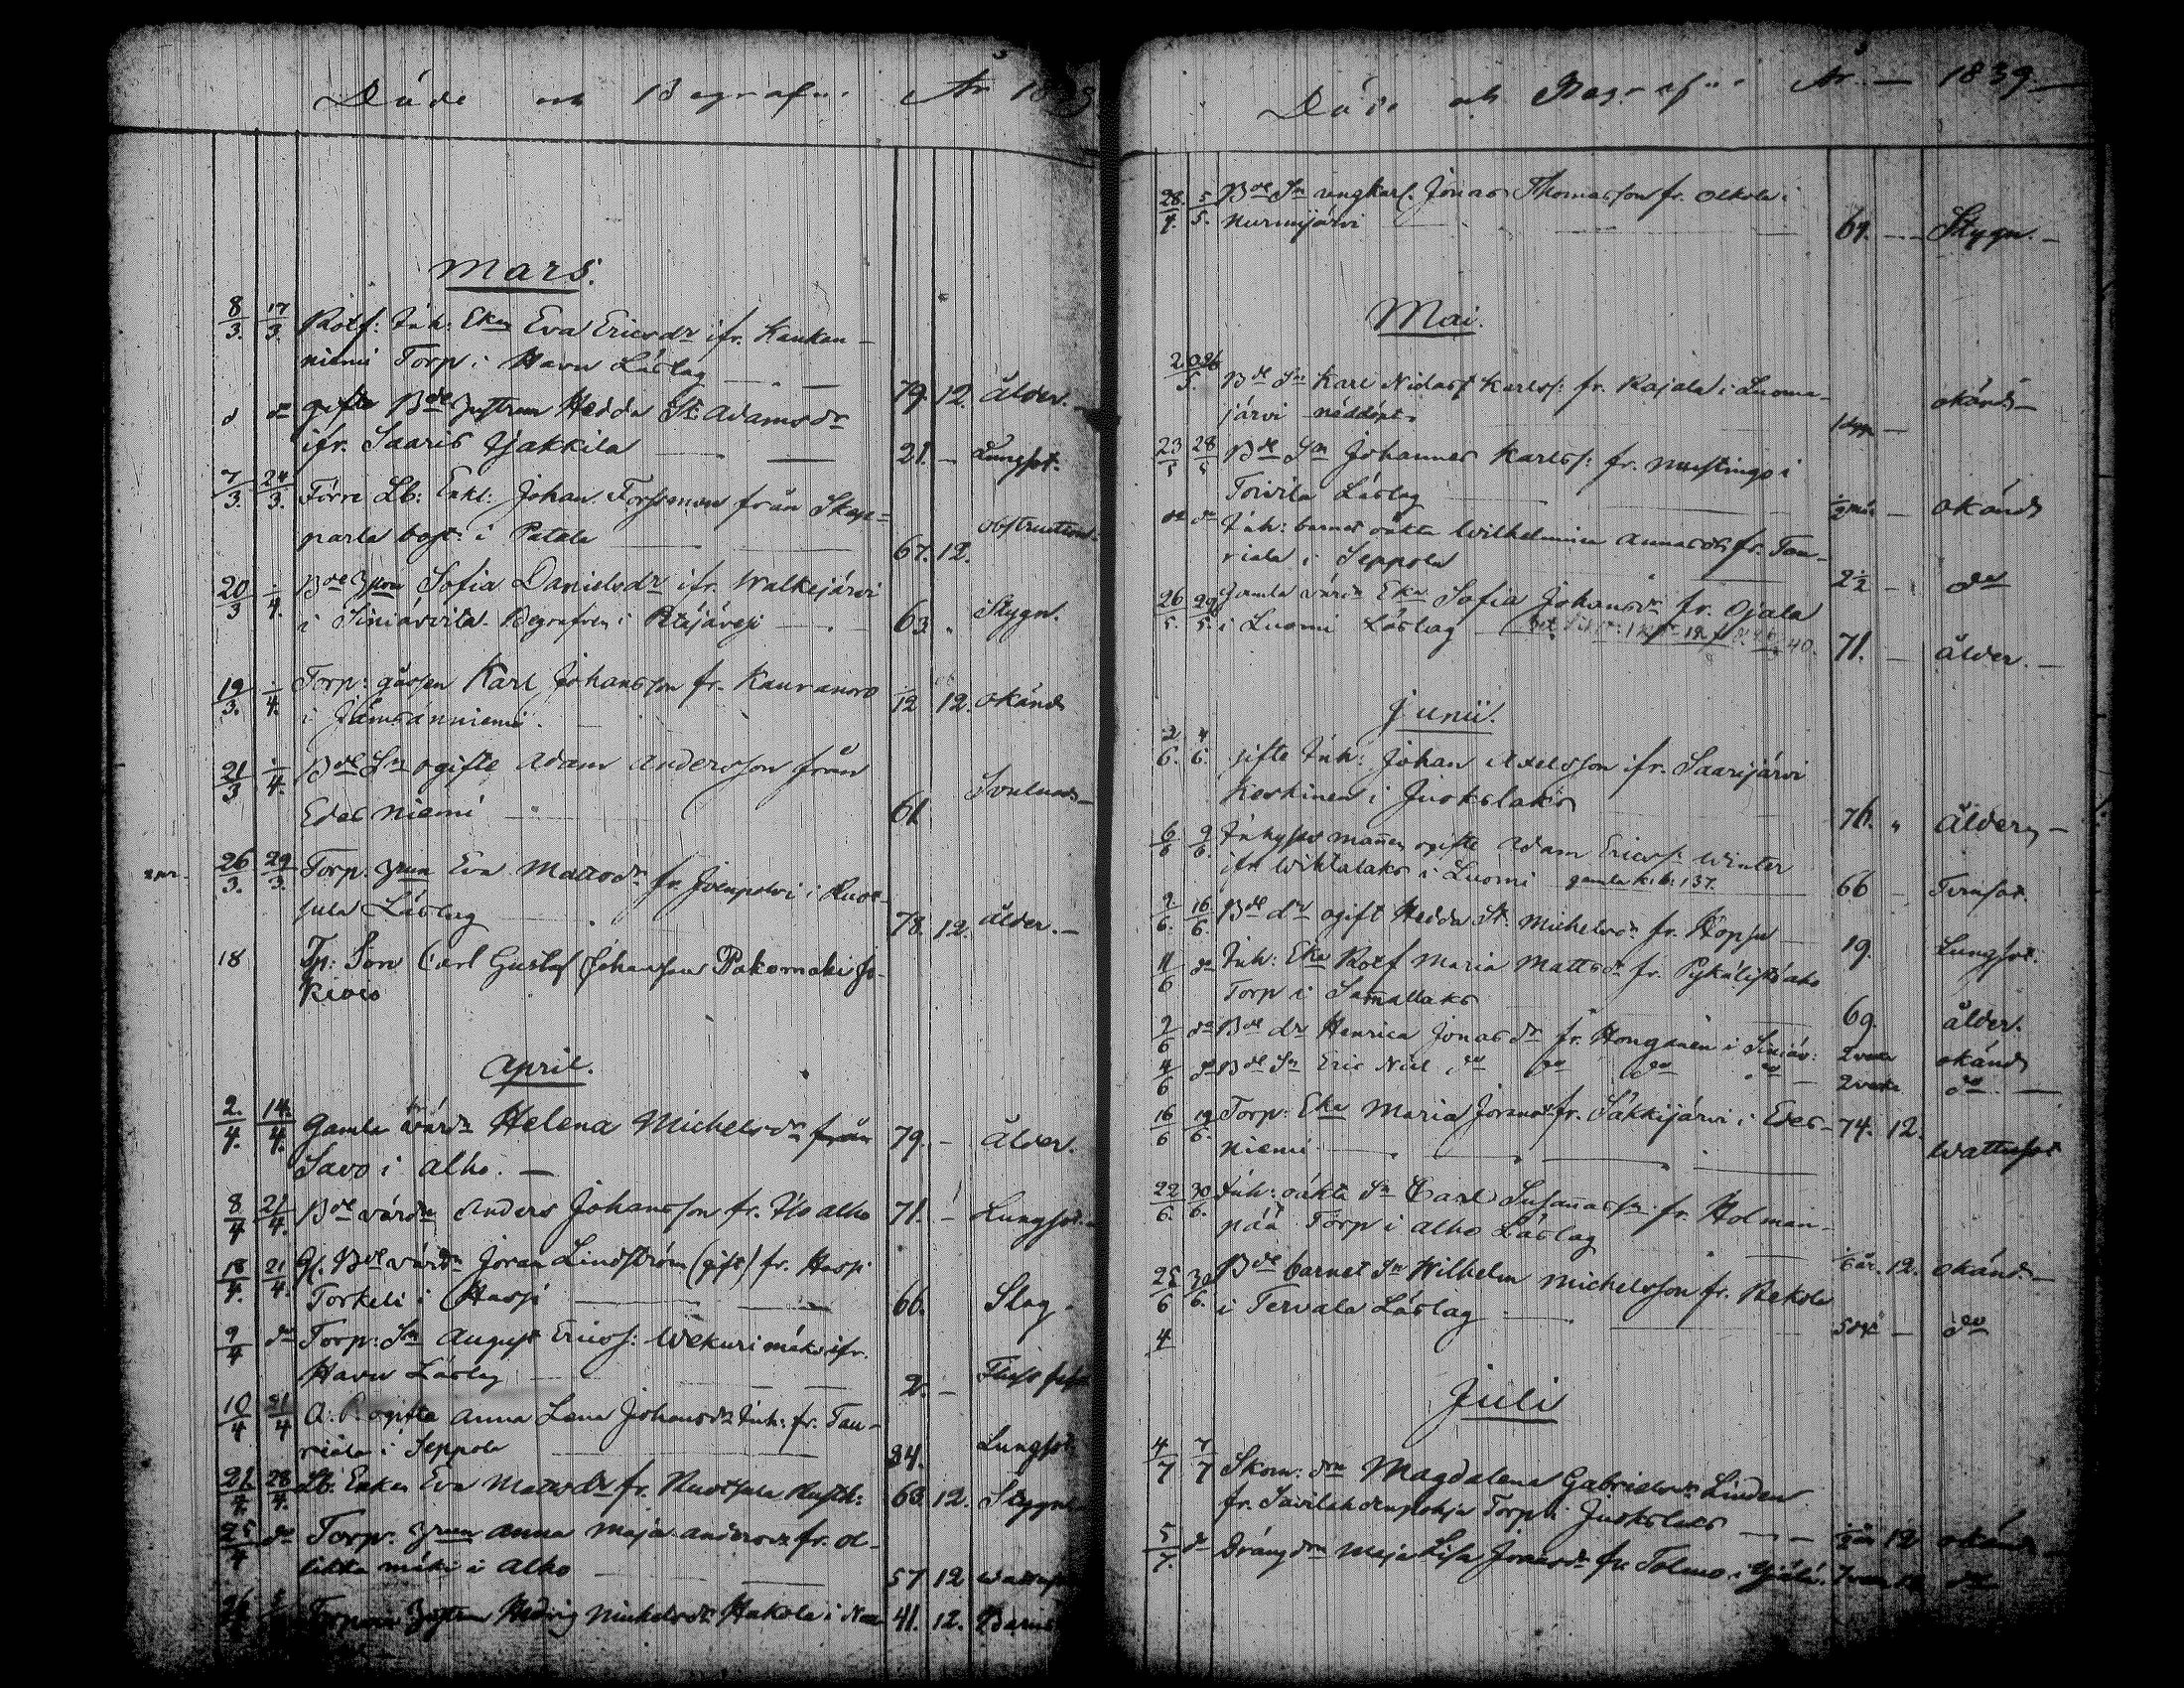 Döde och Begrafne År 1839
Mars.
8/3. 17/3. Rotf: Inh: Eka Eva Ericsdr ifr. Kaukan-
niemi Torp i Havu Låslag 79. 12. Ålder.
d do gifta Bde Hedda St. Adamsdr
ifr. Saaris Yjakkila 21. – Lungsot.
7/3. 24/3. Förre Lb: Enkl: Johan Forssman från Skep=
parla bost: i Patala 67. 12. obstruction.
20/3 1/4. Bde Sofia Danielsdr ifr. Walkejärvi
i Siniärvilä. Begrafven i Petäjävesi 63. " Stygn.
19/3. 1/4. Torp: gåssen Karl Johansson fr. Kauranoro
i Jämsänniemi. 1/12 12. okänd
21/3 1/4. Bde Sn ogifte Adam Andersson från
Edesniemi 61 Svulnad
26/3. 29/3. Torp: Eva Mattsdr fr. i Ruot-
sula Låslag 78. 12. ålder.
18 Tp: Son Carl Gustaf Johansson Pakomäki Jo-
kivis
April.
2./4. 14./4. Gamla värdn Helena Michelsdr från
Savo i Alho. – 79. – Ålder.
8/4 21/4. Bde värdn Anders Johansson fr. Ylö alho 71. – Lungsot.
18/4. 21/4. Gl. Bde värdn Jöran Lindström (gift) fr. Hassi
Torkeli i Hassi 66. Slag.
9/4 do Torp: Sn August Ericss: Wekurimäki ifr.
Havu Låslag 2. –
10/4 21/4 ogifta Anna Lena Johansdr Inh: fr. Tau-
riala i Seppola 24. Lungsot.
28/4. Lb: Enkan Eva Mattsdr fr. Ruotsula Rusth: 63. 12. Stygn
25/4 do Torp: Anna Maja Andersdr fr. ol-
likkamäki i Alho 57 12
Hedvig Michelsdr Hakola i 41. 12.
Döde och Begrafne År – 1839
28./4. 5/5. Bde Sn ungkarl. Jonas Thomasson fr. Olkola i
Nurmijärvi 69. – Stygn. –
Mai.
20/5. 26 Bde Sn Karl Karlss: fr. Rajala i Luoma-
järvi nöddöpt. 1 dygn – okänd –
23/5 28/5 Bde Sn Johannes Karlss: fr. i
Toivila Låslag – okänd
do do Inh: barnet oäkta Wilhelmina Annasdr fr. Tau-
riala i Seppola 2 1/2 – do
26/5. 29/5. Gamla värdn Eka Sofia Johansdr fr. Ojala
i Luomi Låslag 71. – ålder. –
Junii.
2/6. 4/6. gifte Inh: Johan Axelsson ifr. Saarijärvi
Keskinen i Juokslaks 76. " Ålder –
6/6 9/6. Inhyses mannen ogifte Adam Ericss: Winter
ifr. Wihtalaks i Luomi gamla k.b: 137. 66 – Tvinsot.
2/6. 16/6. Bde dr ogift Hedda St. Michelsdr fr. Hopsu 19. Lungsot.
11/6 do Inh: Eka Rotf Maria Mattsdr fr.
Torp i Samallaks 69. ålder.
2/6 do Bde dr Henrica Jonasdr fr. Honganen i Siniär: 2 veck okänd
4/6 do Bde Sn Eric Nils do do do do – 2 veck do –
16/6 19/6. Torp: Eka Maria Joransdr fr. Säkkijärvi i Edes-
niemi 74. 12. Wattusot
22/6. 30/6. Inh: oäkta Sn Carl Susannasson fr. Holman-
pää Torp i Alho Låslag år. 12. okänd –
25/6 30/6. Bde barnet Sn Wilhelm Michelsson fr. Rekola
i Tervala Låslag – do
4
Juli
4/7 7/7 Skom: drn Magdalena Gabrielsdr Linden
fr. Torp i Juokslaks år 12 okänd
5/7. do Dräng drn Maja Lisa Jonasdr fr. Tolmo i do